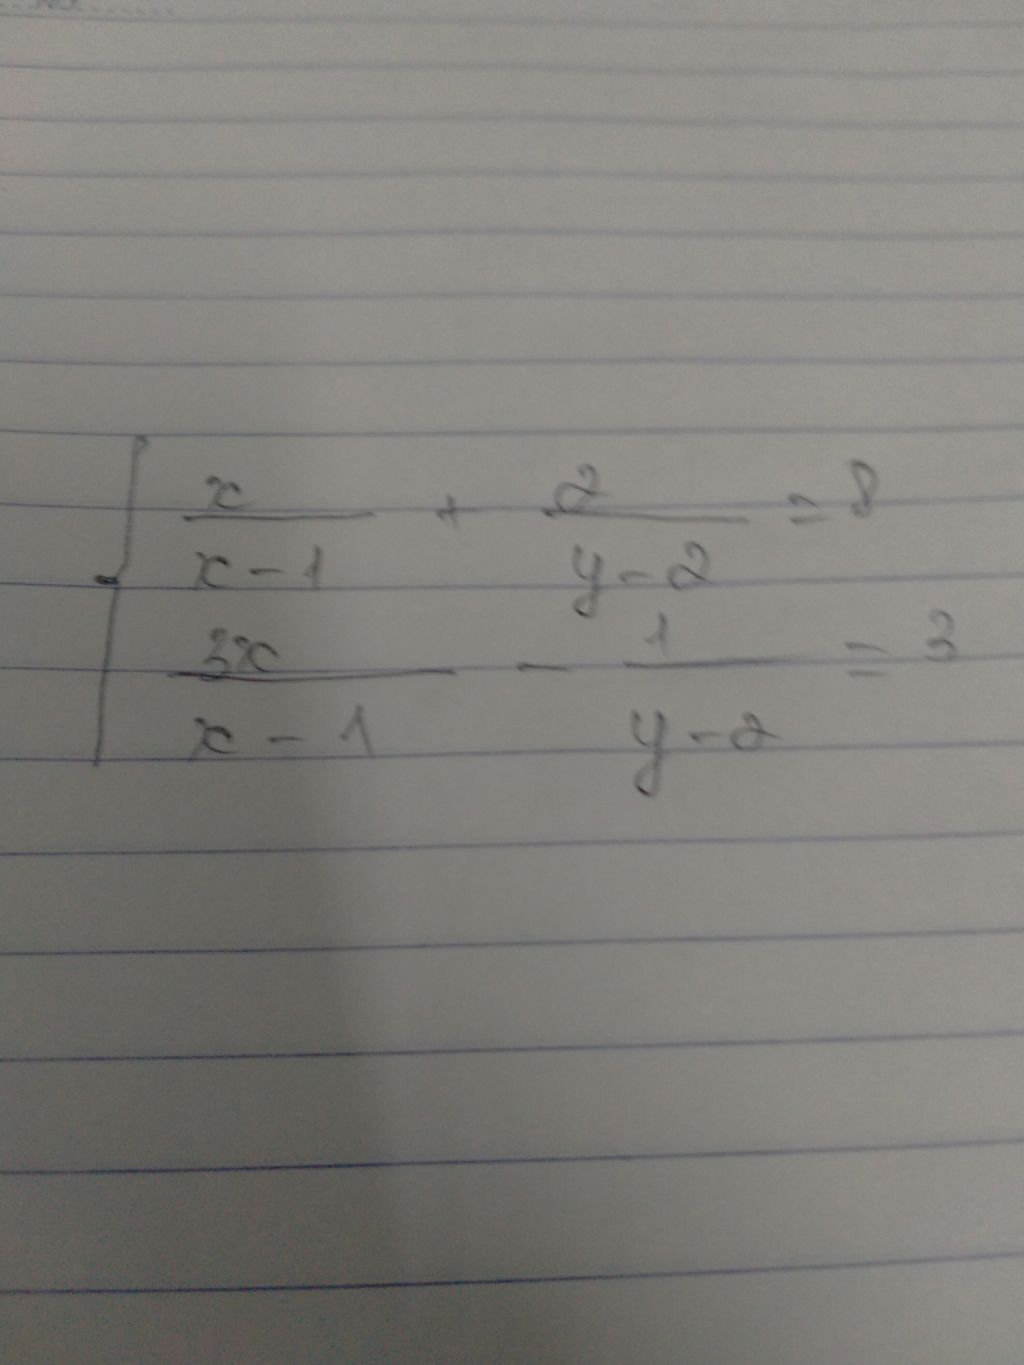 x/(x-1) + 2/(y-2) = 8
3x/(x-1) - 1/(y-2) = 3